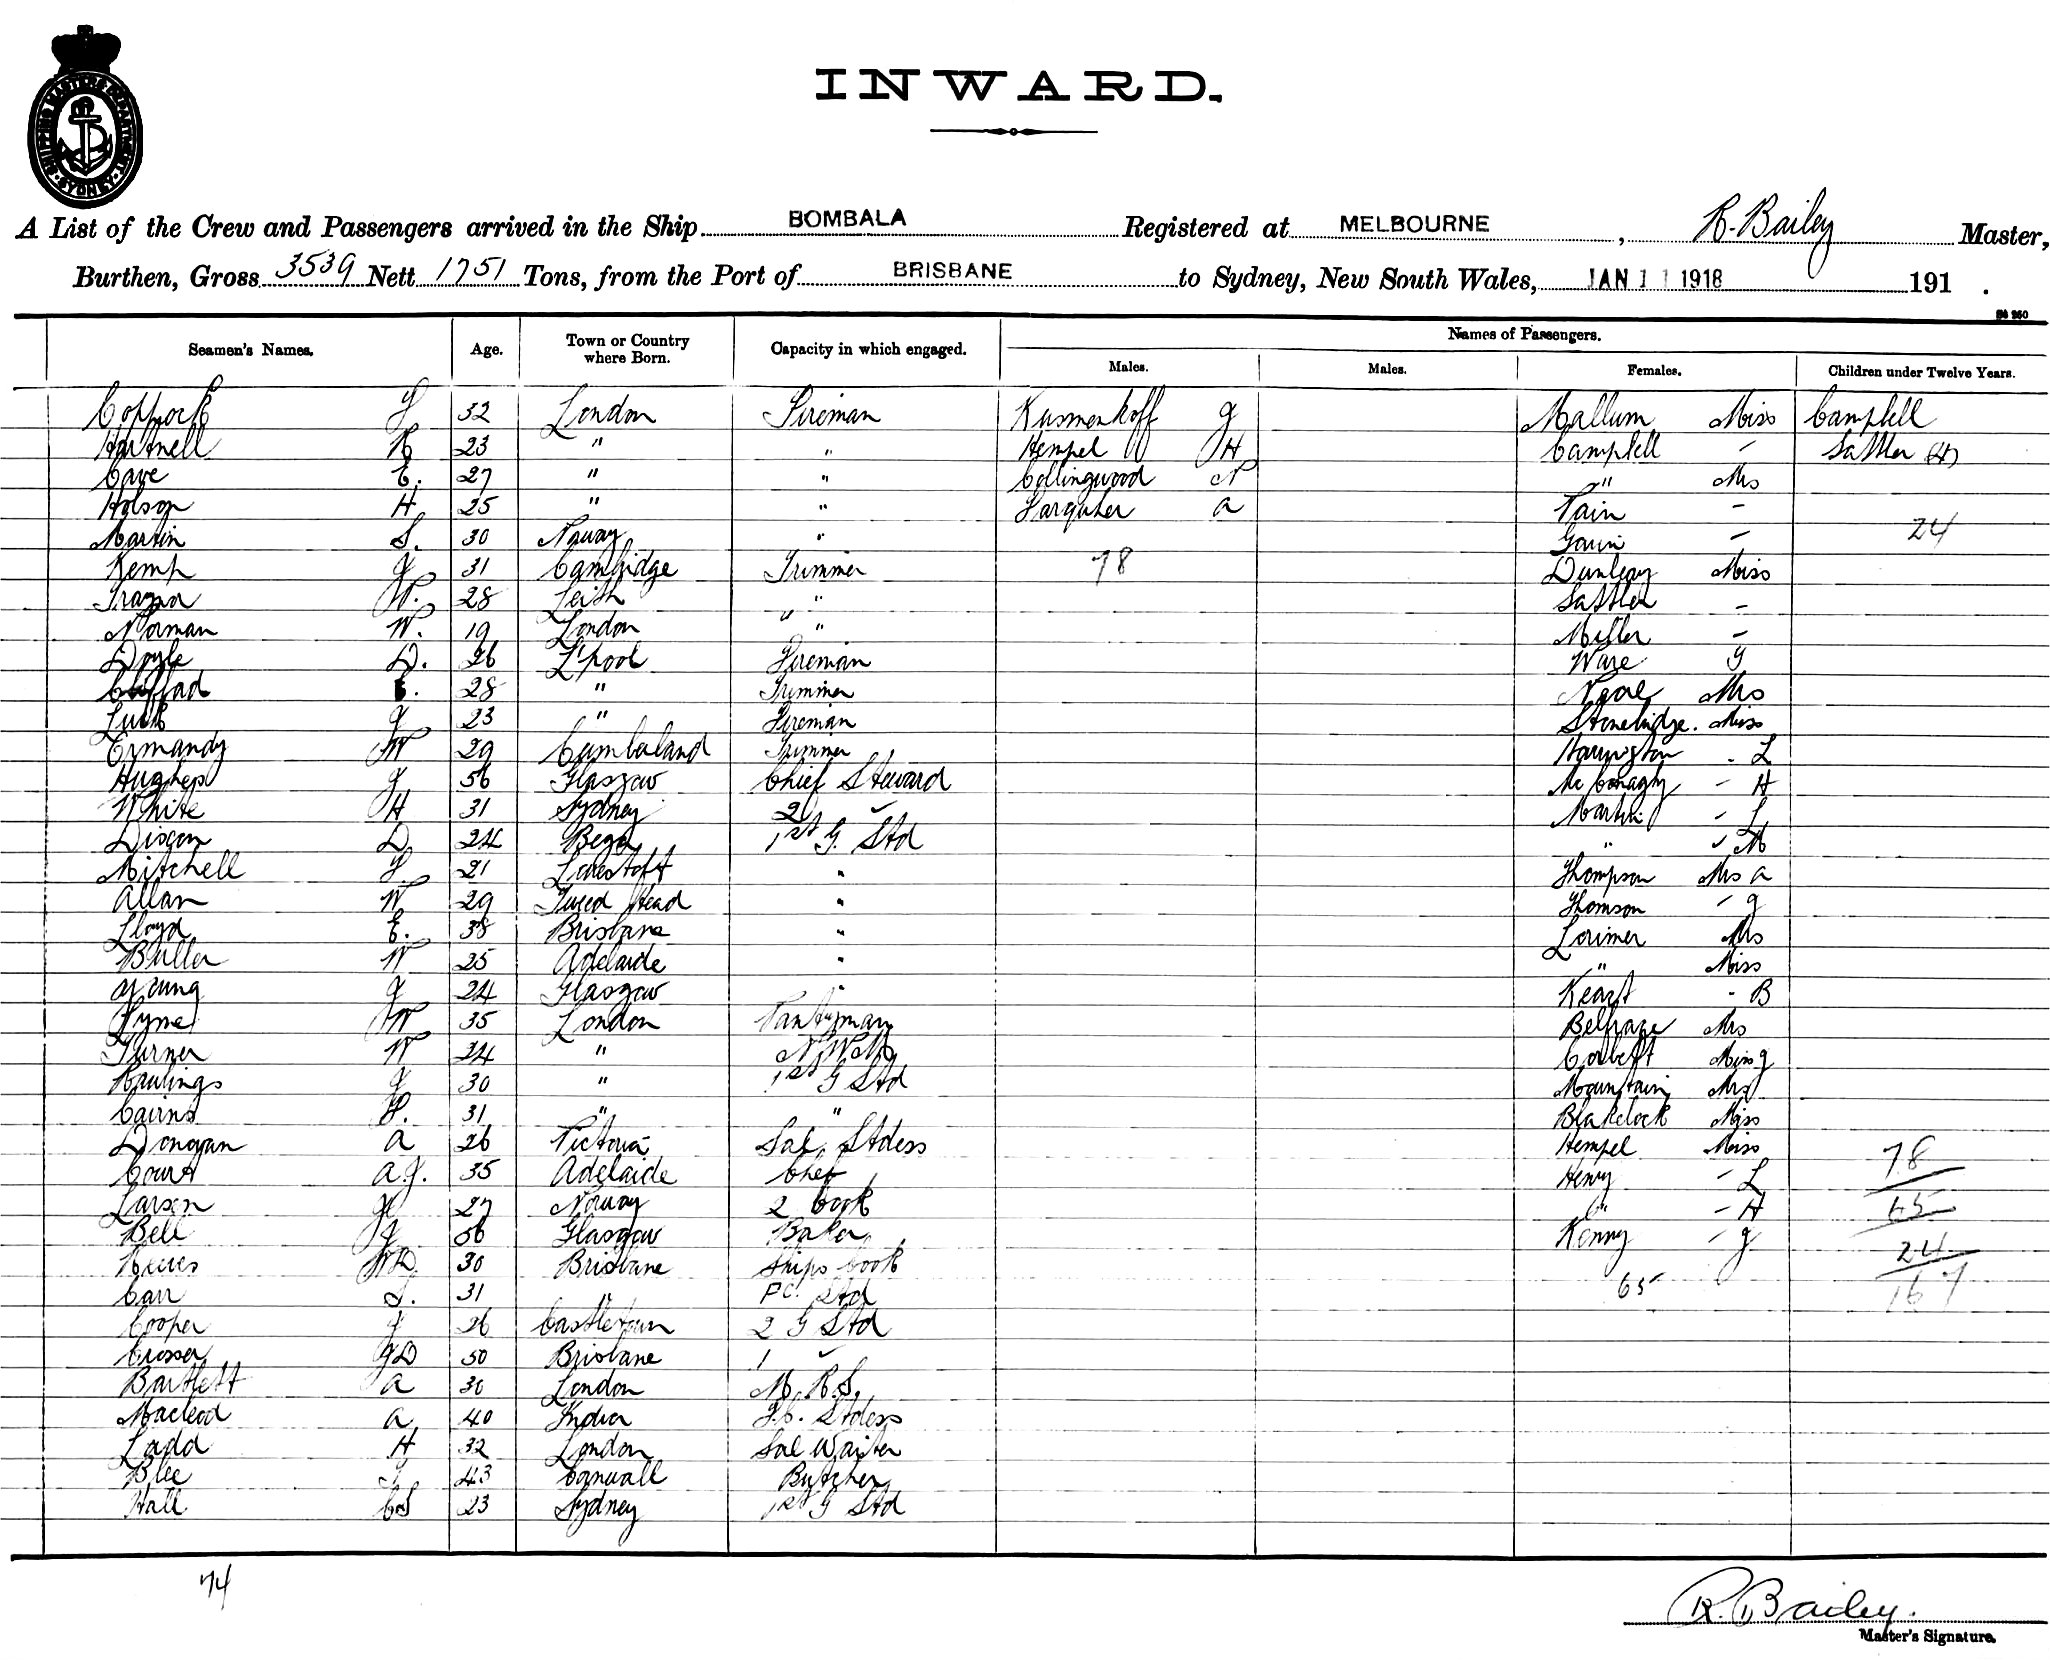 SHIPPING MASTERS DEPARTMENT SYDNEY
INWARD.
A List of the Crew and Passengers arrived in the Ship BOMBALA Registered at MELBOURNE, R. Bailey Master,
Burthen, Gross 3539 Nett 1751 Tons, from the Port of BRISBANE to Sydney, New South Wales, JAN 11 1918 191 .
Seamen's Names. Age. Town or Country where Born. Capacity in which engaged. Names of Passengers.
Males. Males. Females. Children under Twelve Years.
Coppock 32 London Fireman Kusmenkoff G Mallum Miss Campbell
Hartnell R 23 " " Hempel H Campbell - Sattler (4)
Cave E. 27 " " Collingwood N " Mrs
Holson H 25 " " Farquher A Tain -
Martin S. 30 Norway " Gavin - 24
Kemp J 31 Cambridge Trimmer 78 Dunleavy Miss
W. 28 Leith " Sattler -
Norman W. 19 London " Miller -
Doyle D. 26 L'pool Fireman Ware G
28 " Trimmer Mrs
J 23 " Fireman Stonebridge. Miss
Ormandy W 29 Cumberland Trimmer Harrington - L
Hughes J 56 Glasgow Chief Steward - H
White H 31 Sydney 2 " Martin - L
Dixon D 24 Bega 1st G. Std " - M
Mitchell 21 Lowestoft " Thompson Mrs A
Allan W 29 Tweed Head " Thomson - G
Lloyd E. 38 Brisbane " Lorimer Mrs
Buller W 25 Adelaide " " Miss
Young J 24 Glasgow " - B
Lyne W 35 London Pantryman Belfrage Mrs
Turner W 34 " Corbett Miss G
Raulings J 30 " 1st G Std Mountain Mrs
Cairns 31 " " Blakelock Miss
Donovan A 26 Victoria Sal. Stdess Hempel Miss 78
Court A.J. 35 Adelaide Chef Henry - L
Larsen 27 Norway 2 Cook " - H 65
Bell J 56 Glasgow Baker Kenny - G
30 Brisbane Ships Cook 24
Carr 31 " P.C. Std 65 167
Cooper J 26 Castletown 2 G Std
Crosser JD 50 Brisbane 1 "
Bartlett A 30 London M.R.S.
Macleod A 40 India Stdess
Ladd H 32 London Sal Waiter
Blee 43 Cornwall Butcher
Hall CS 23 Sydney 1st G Std
74
R. Bailey.
Master's Signature.